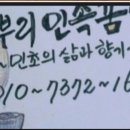 뿌리 민속품
~민초의 삶과 향기
010~7372~16